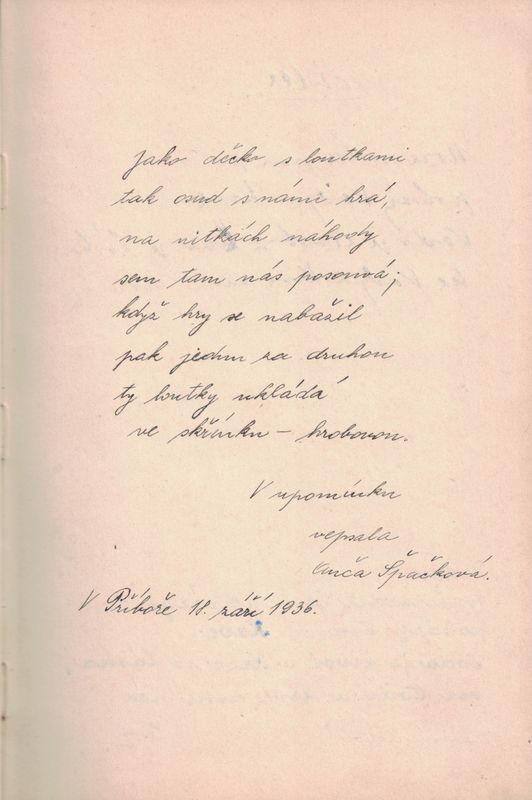 Jako děcko s loutkami
tak osud s námi hrá,
na nitkách náhody
sem tam nás posouvá;
když hry se nabažil
pak jednu za druhou
ty loutky ukládá
ve skřínku – hrobovou.
V upomínku
vepsala
Anča Špačková.
V Příboře 18. září 1936.